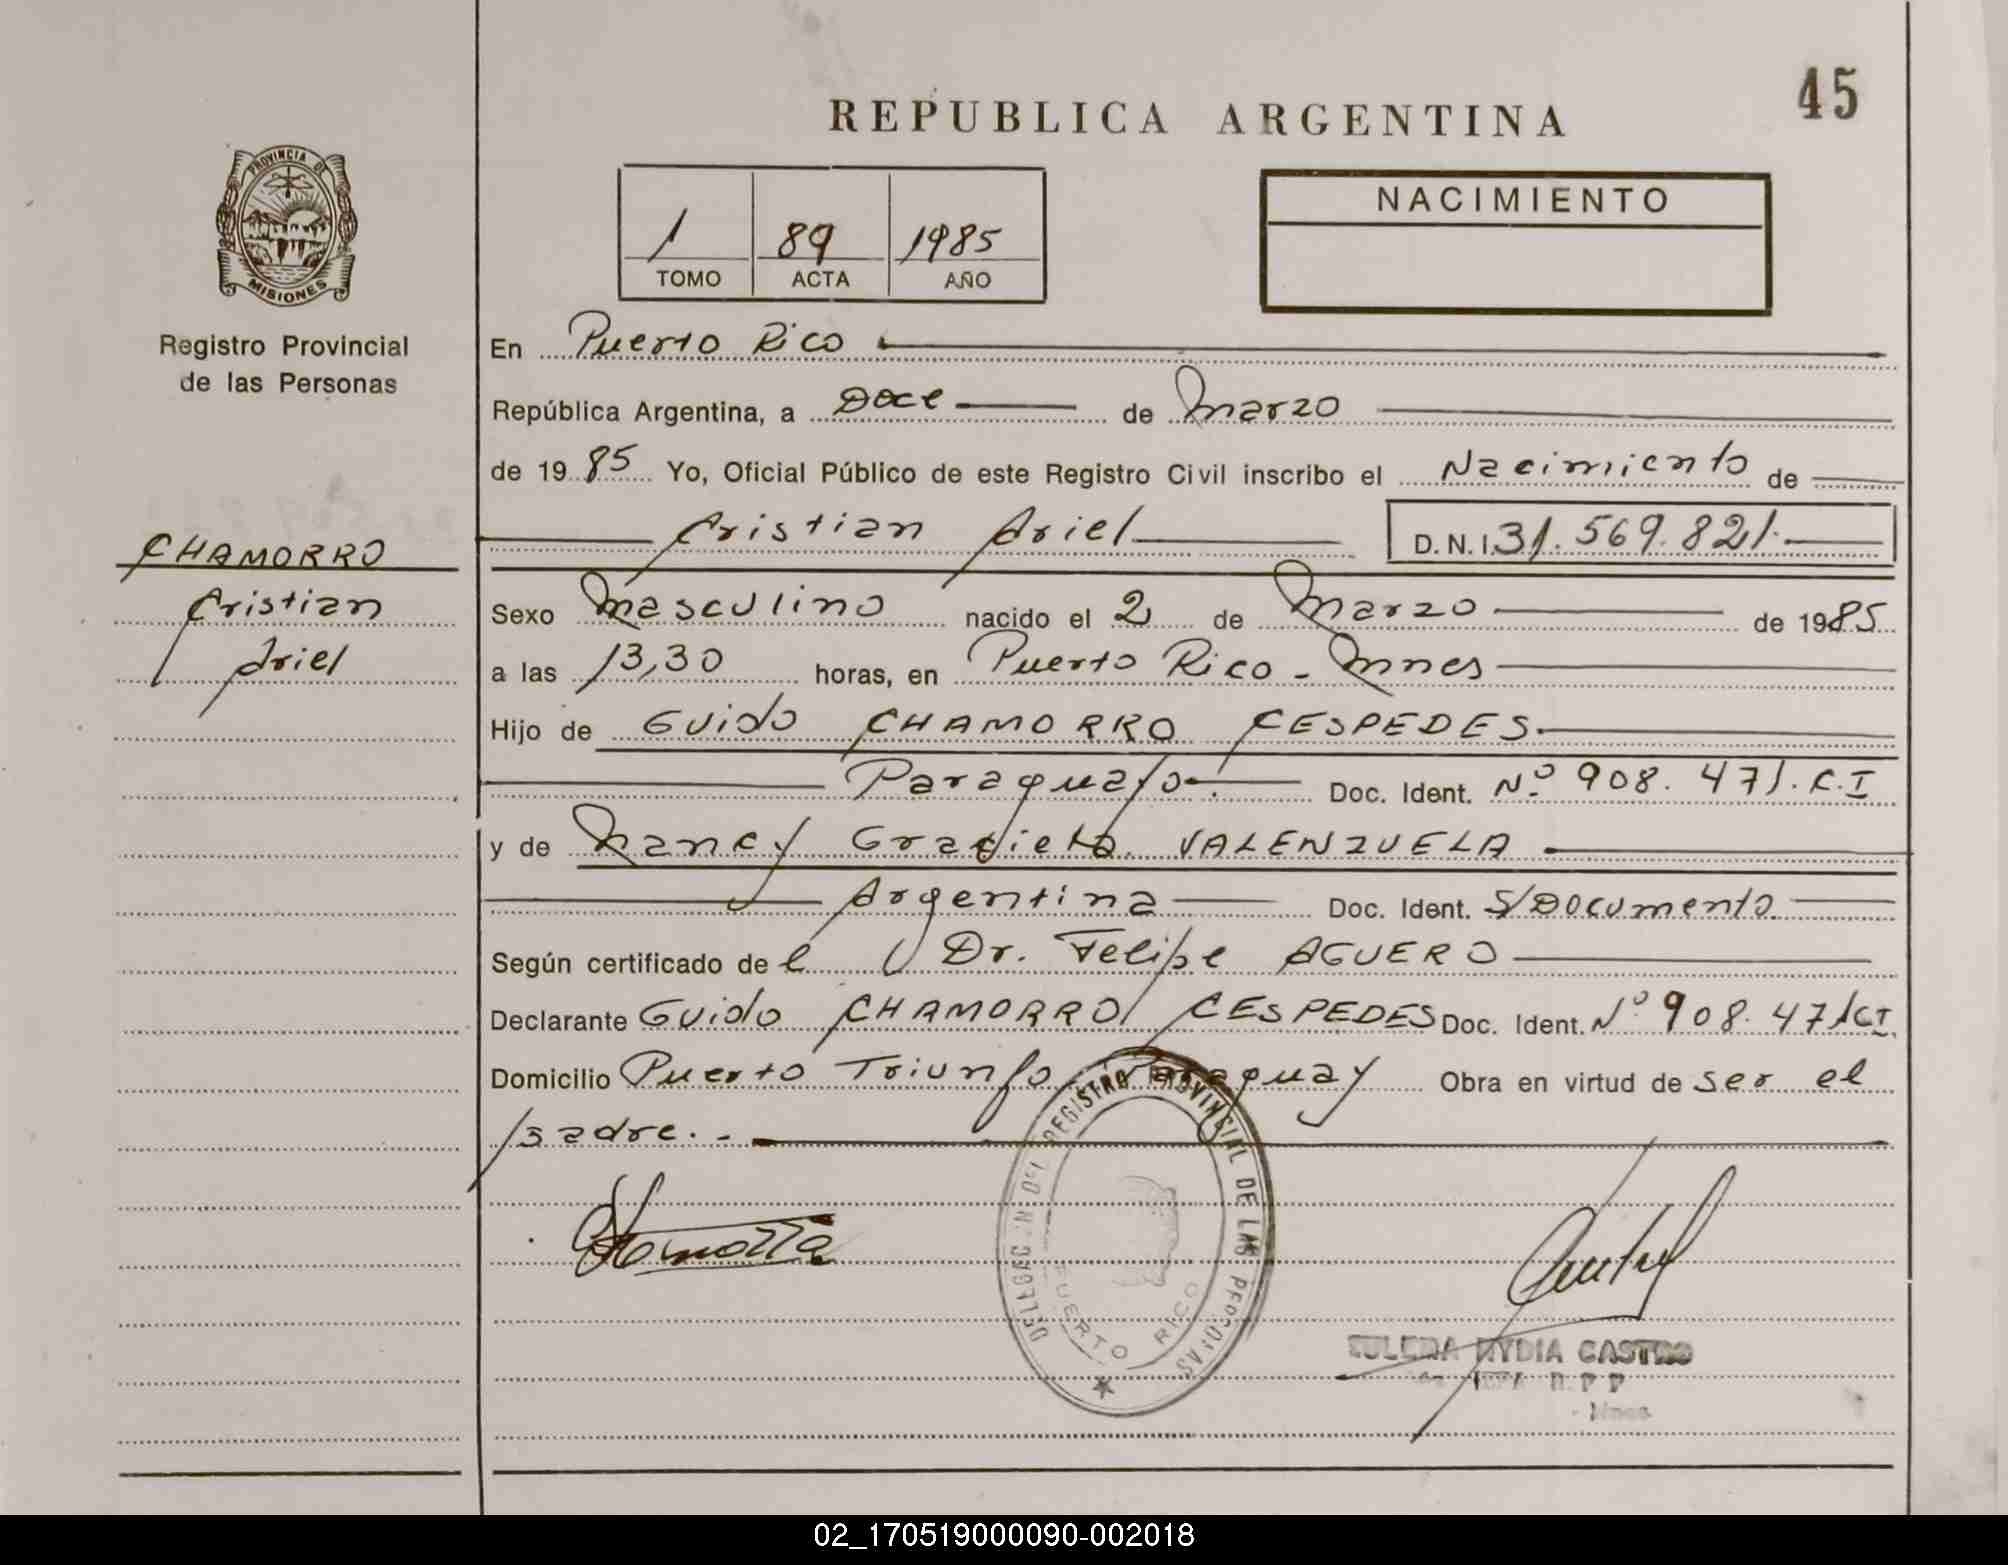 45
REPUBLICA ARGENTINA
PROVINCIA DE
MISIONES
Registro Provincial
de las Personas
1 89 1985
TOMO ACTA AÑO
NACIMIENTO
En Puerto Rico
República Argentina, a Doce de Marzo
de 1985 Yo, Oficial Público de este Registro Civil inscribo el Nacimiento de
Cristian Ariel D.N.I. 31.569.821.
CHAMORRO
Cristian
Ariel
Sexo Masculino nacido el 2 de Marzo de 1985
a las 13,30 horas, en Puerto Rico - Mnes
Hijo de Guido CHAMORRO CESPEDES.
Paraguayo. Doc. Ident. Nº 908.471. C.I
y de Nancy Graciela VALENZUELA
Argentina Doc. Ident. S/Documento.
Según certificado del Dr. Felipe AGUERO
Declarante Guido CHAMORRO CESPEDES Doc. Ident. Nº 908.471 CI.
Domicilio Puerto Triunfo Paraguay Obra en virtud de ser el
padre.-
DELEGACION DEL REGISTRO PROVINCIAL DE LAS PERSONAS
PUERTO RICO
CASTRO
Mnes
02_170519000090-002018